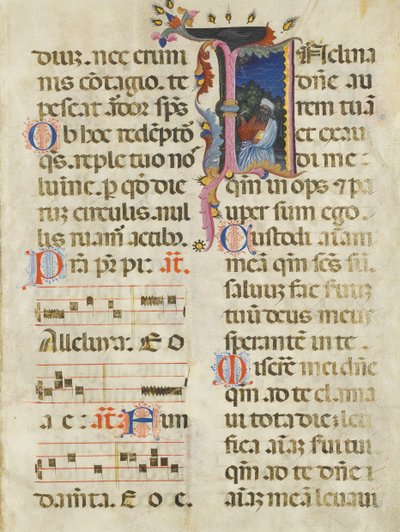 diuiz. nec crimi
nis cõtagio. te
pescat ardor sp̃s
Ob hoc redẽptor
q̃s. reple tuo no
lumine. p̱ q̃d die
rũz circulis. nul
lis ruam̃ actibꝯ.
añ.
Alleluya. E O
a e. añ. Nun
E o e.
Inclina
dñe au
rem tuã
et exau
di me
qm̃ inops ⁊ pa
uper sum ego.
Custodi aĩam
meã qm̃ sc̃s sũ.
saluũ fac seruũ
tuũ deus meus
sperantẽ in te.
Miserẽ mei dñe
qm̃ ad te clama
ui tota die leti
fica aĩaz serui tui
qm̃ ad te dñe
aĩaz meã leuaui